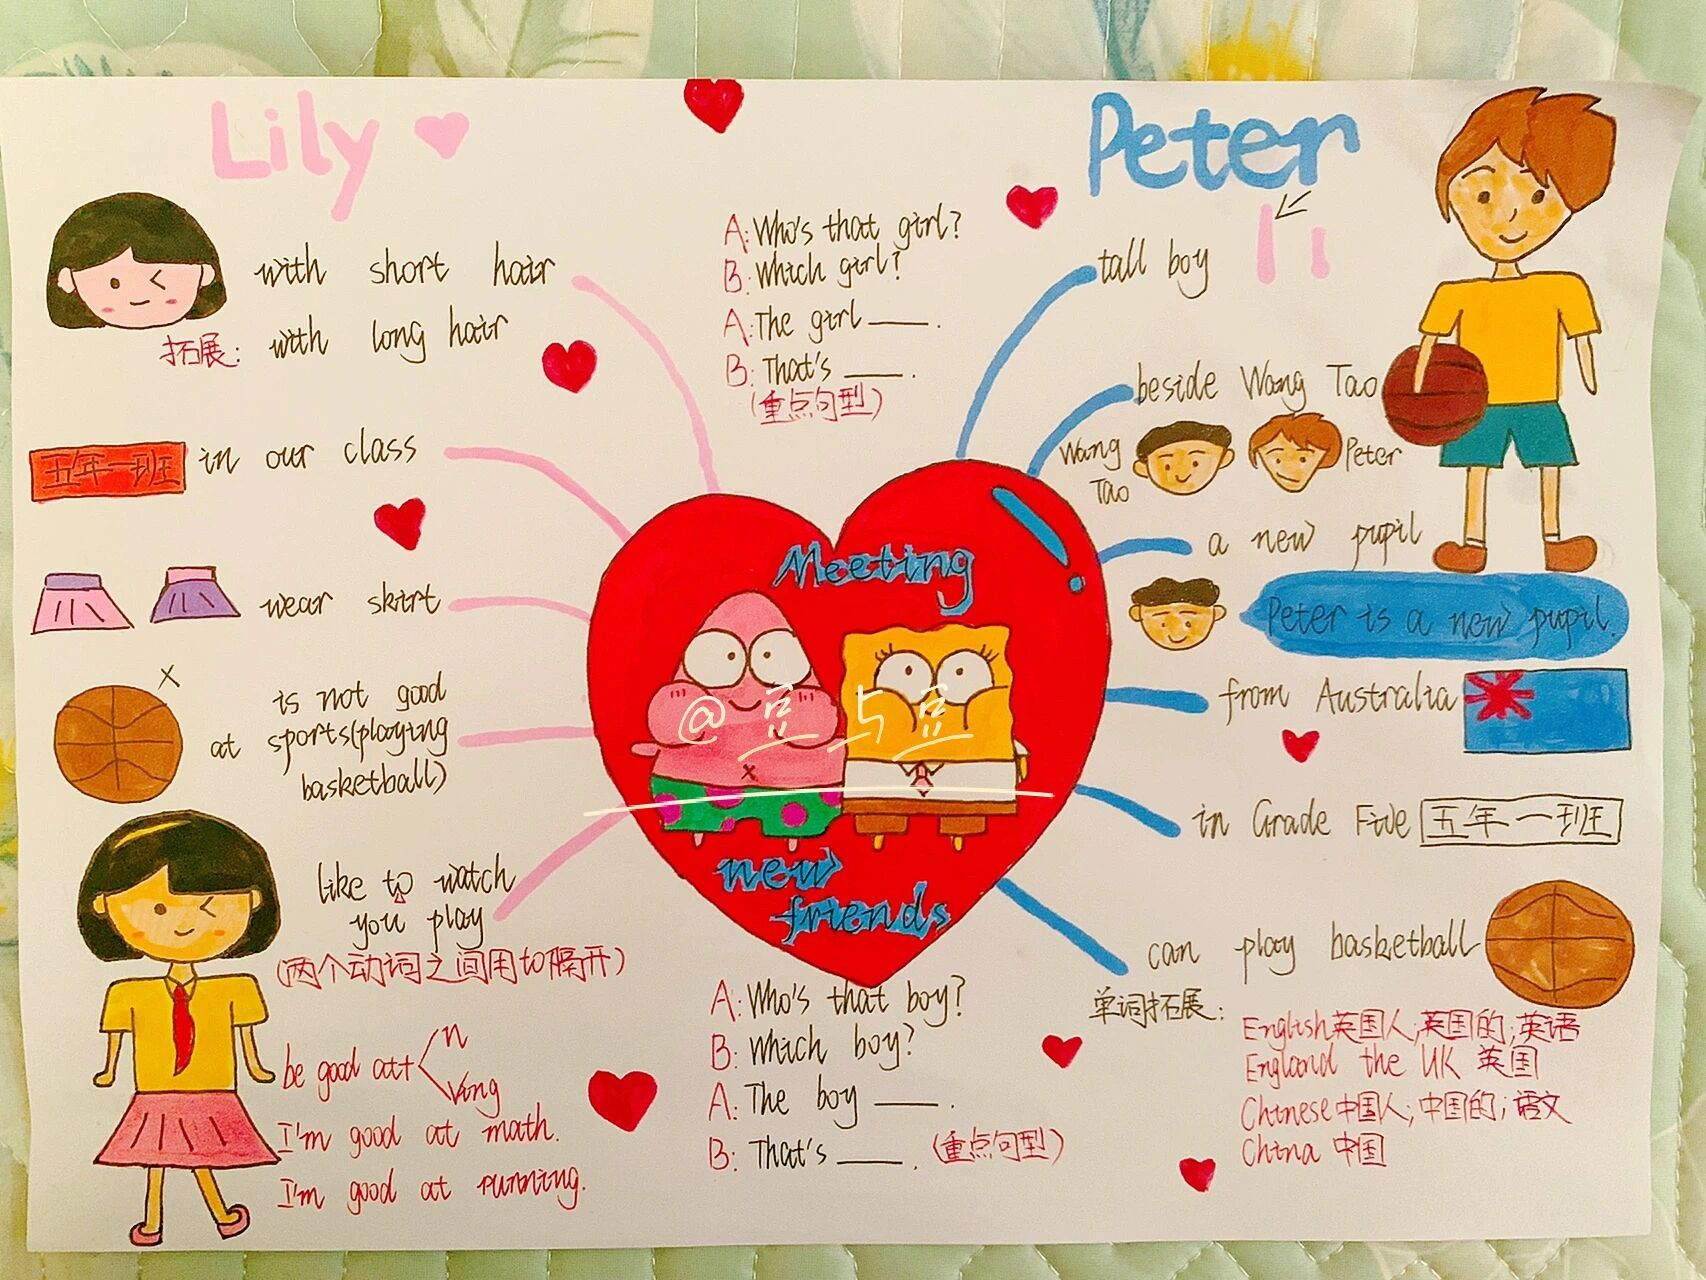 Lily
with short hair
拓展: with long hair
五年一班 in our class
wear skirt
is not good
at sports(playing
basketball)
like to watch
you play
(两个动词之间用to隔开)
be good at+
n
Ving
I'm good at math.
I'm good at running.
A: Who's that girl?
B: Which girl?
A: The girl ____.
B: That's ____.
(重点句型)
Meeting
@豆与豆
new
friends
A: Who's that boy?
B: Which boy?
A: The boy ____.
B: That's ____. (重点句型)
Peter
tall boy
beside Wang Tao
Wang
Tao
Peter
a new pupil
Peter is a new pupil.
from Australia
in Grade Five 五年一班
can play basketball
单词拓展:
English英国人;英国的;英语
England the UK 英国
Chinese中国人;中国的;语文
China 中国